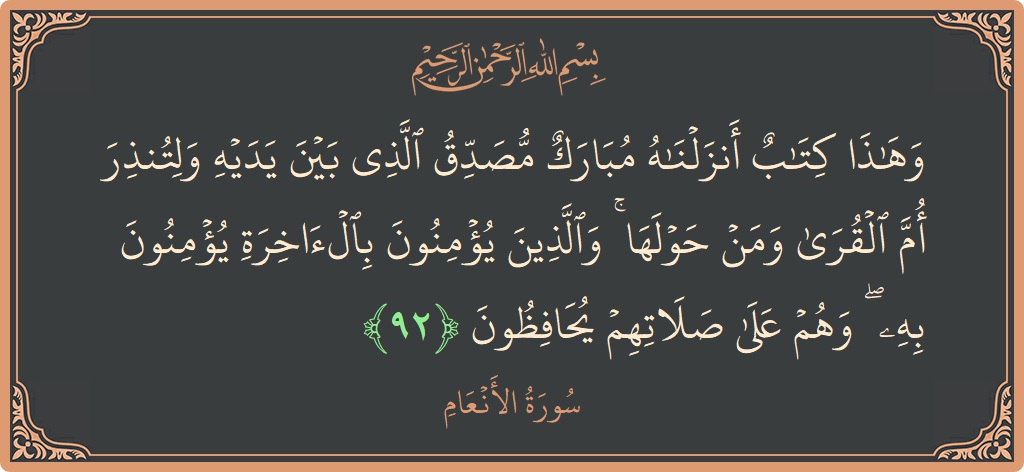 بِسْمِ اللَّهِ الرَّحْمَٰنِ الرَّحِيمِ
وَهَٰذَا كِتَٰبٌ أَنزَلْنَٰهُ مُبَارَكٌ مُّصَدِّقُ ٱلَّذِى بَيْنَ يَدَيْهِ وَلِتُنذِرَ
أُمَّ ٱلْقُرَىٰ وَمَنْ حَوْلَهَا ۚ وَٱلَّذِينَ يُؤْمِنُونَ بِٱلْءَاخِرَةِ يُؤْمِنُونَ
بِهِۦ ۖ وَهُمْ عَلَىٰ صَلَاتِهِمْ يُحَافِظُونَ ﴿٩٢﴾
سُورَةُ الأَنْعَامِ